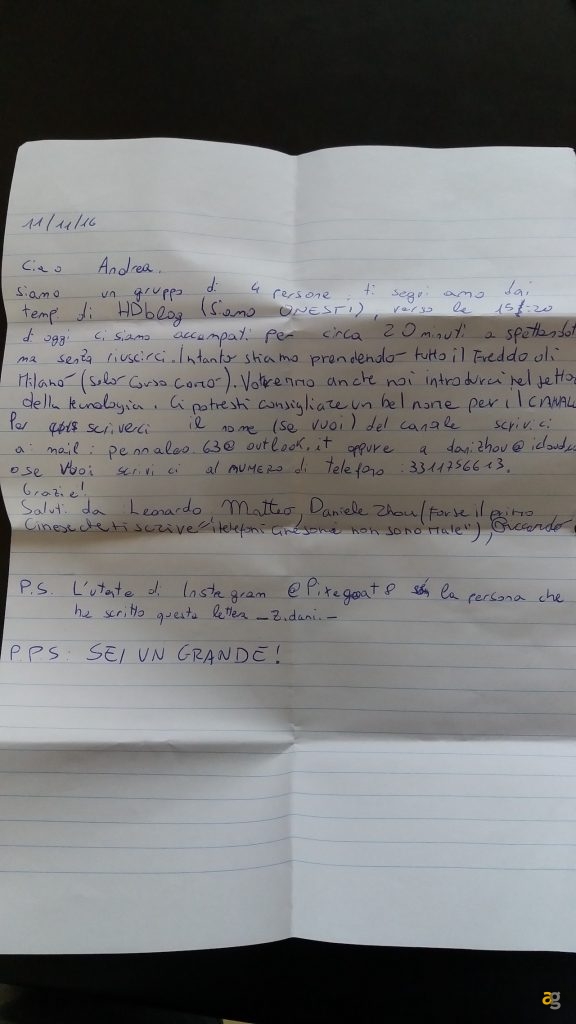 11/11/16
Ciao Andrea.
siamo un gruppo di 4 persone, ti seguiamo dai
tempi di HDblog (siamo ONESTI), verso le 15:20
di oggi ci siamo accampati per circa 20 minuti a spettandot
ma senza riuscirci. Intanto stiamo prendendo tutto il Freddo di
Milano (solo Corso Como). Vorremmo anche noi introdurci nel setto
della tecnologia. Ci potresti consigliare un bel nome per il CANALE
Per scriverci il nome (se vuoi) del canale scrivici
a: mail: pennaleo.63@outlook.it oppure a danizhou@icloud.c
o se vuoi scrivi ci al NUMERO di telefono: 3311756613.
Grazie!
Saluti da Leonardo Matteo, Daniele Zhou (Forse il primo
Cinese che ti scrive "i telefoni Cinesi non sono male"), Riccardo
P.S. L'utente di Instagram @Pixegoat8 la persona che
ha scritto questa lettera _Z.dani._
P.PS: SEI UN GRANDE!
ag